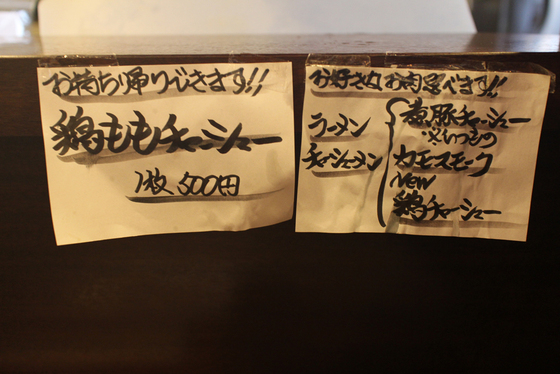 お持ち帰りできます!!
鶏ももチャーシュー
1枚 500円
お好きなお肉選べます!!
ラーメン
チャーシューメン
煮豚チャーシュー
※いつもの
カモスモーク
NEW
鶏チャーシュー